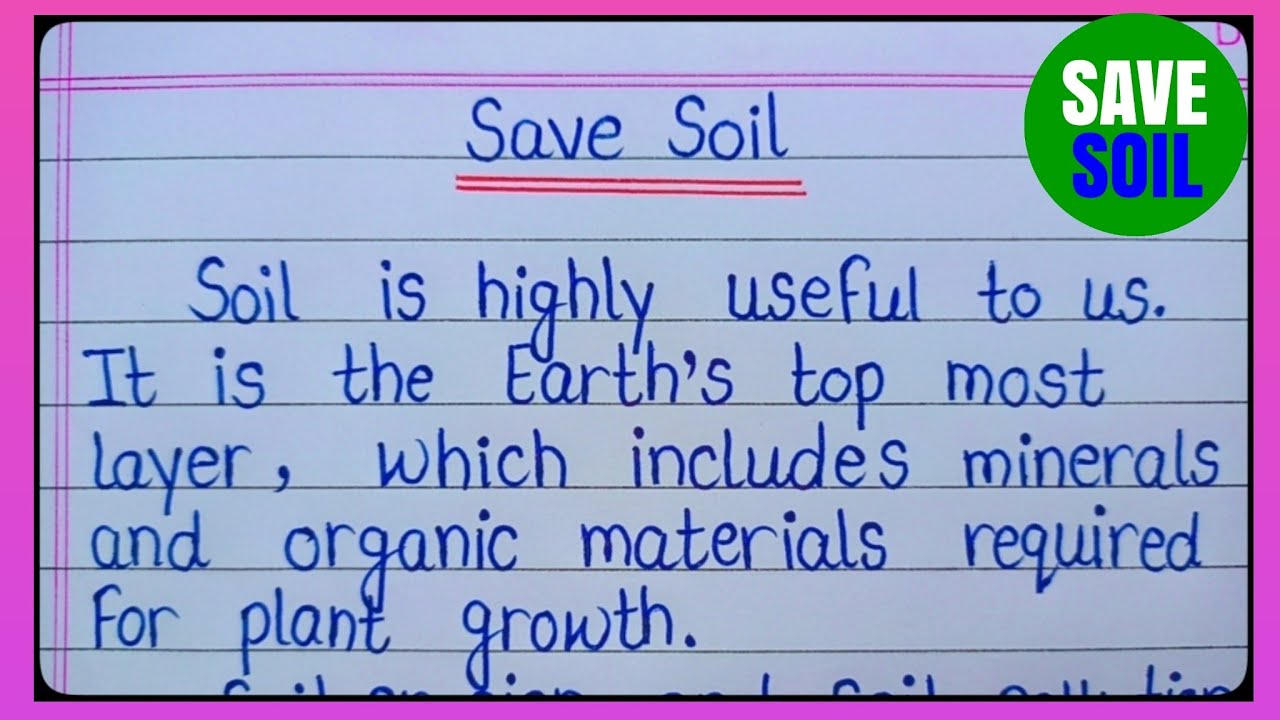 SAVE
SOIL
Save Soil
Soil is highly useful to us.
It is the Earth's top most
layer, which includes minerals
and organic materials required
for plant growth.